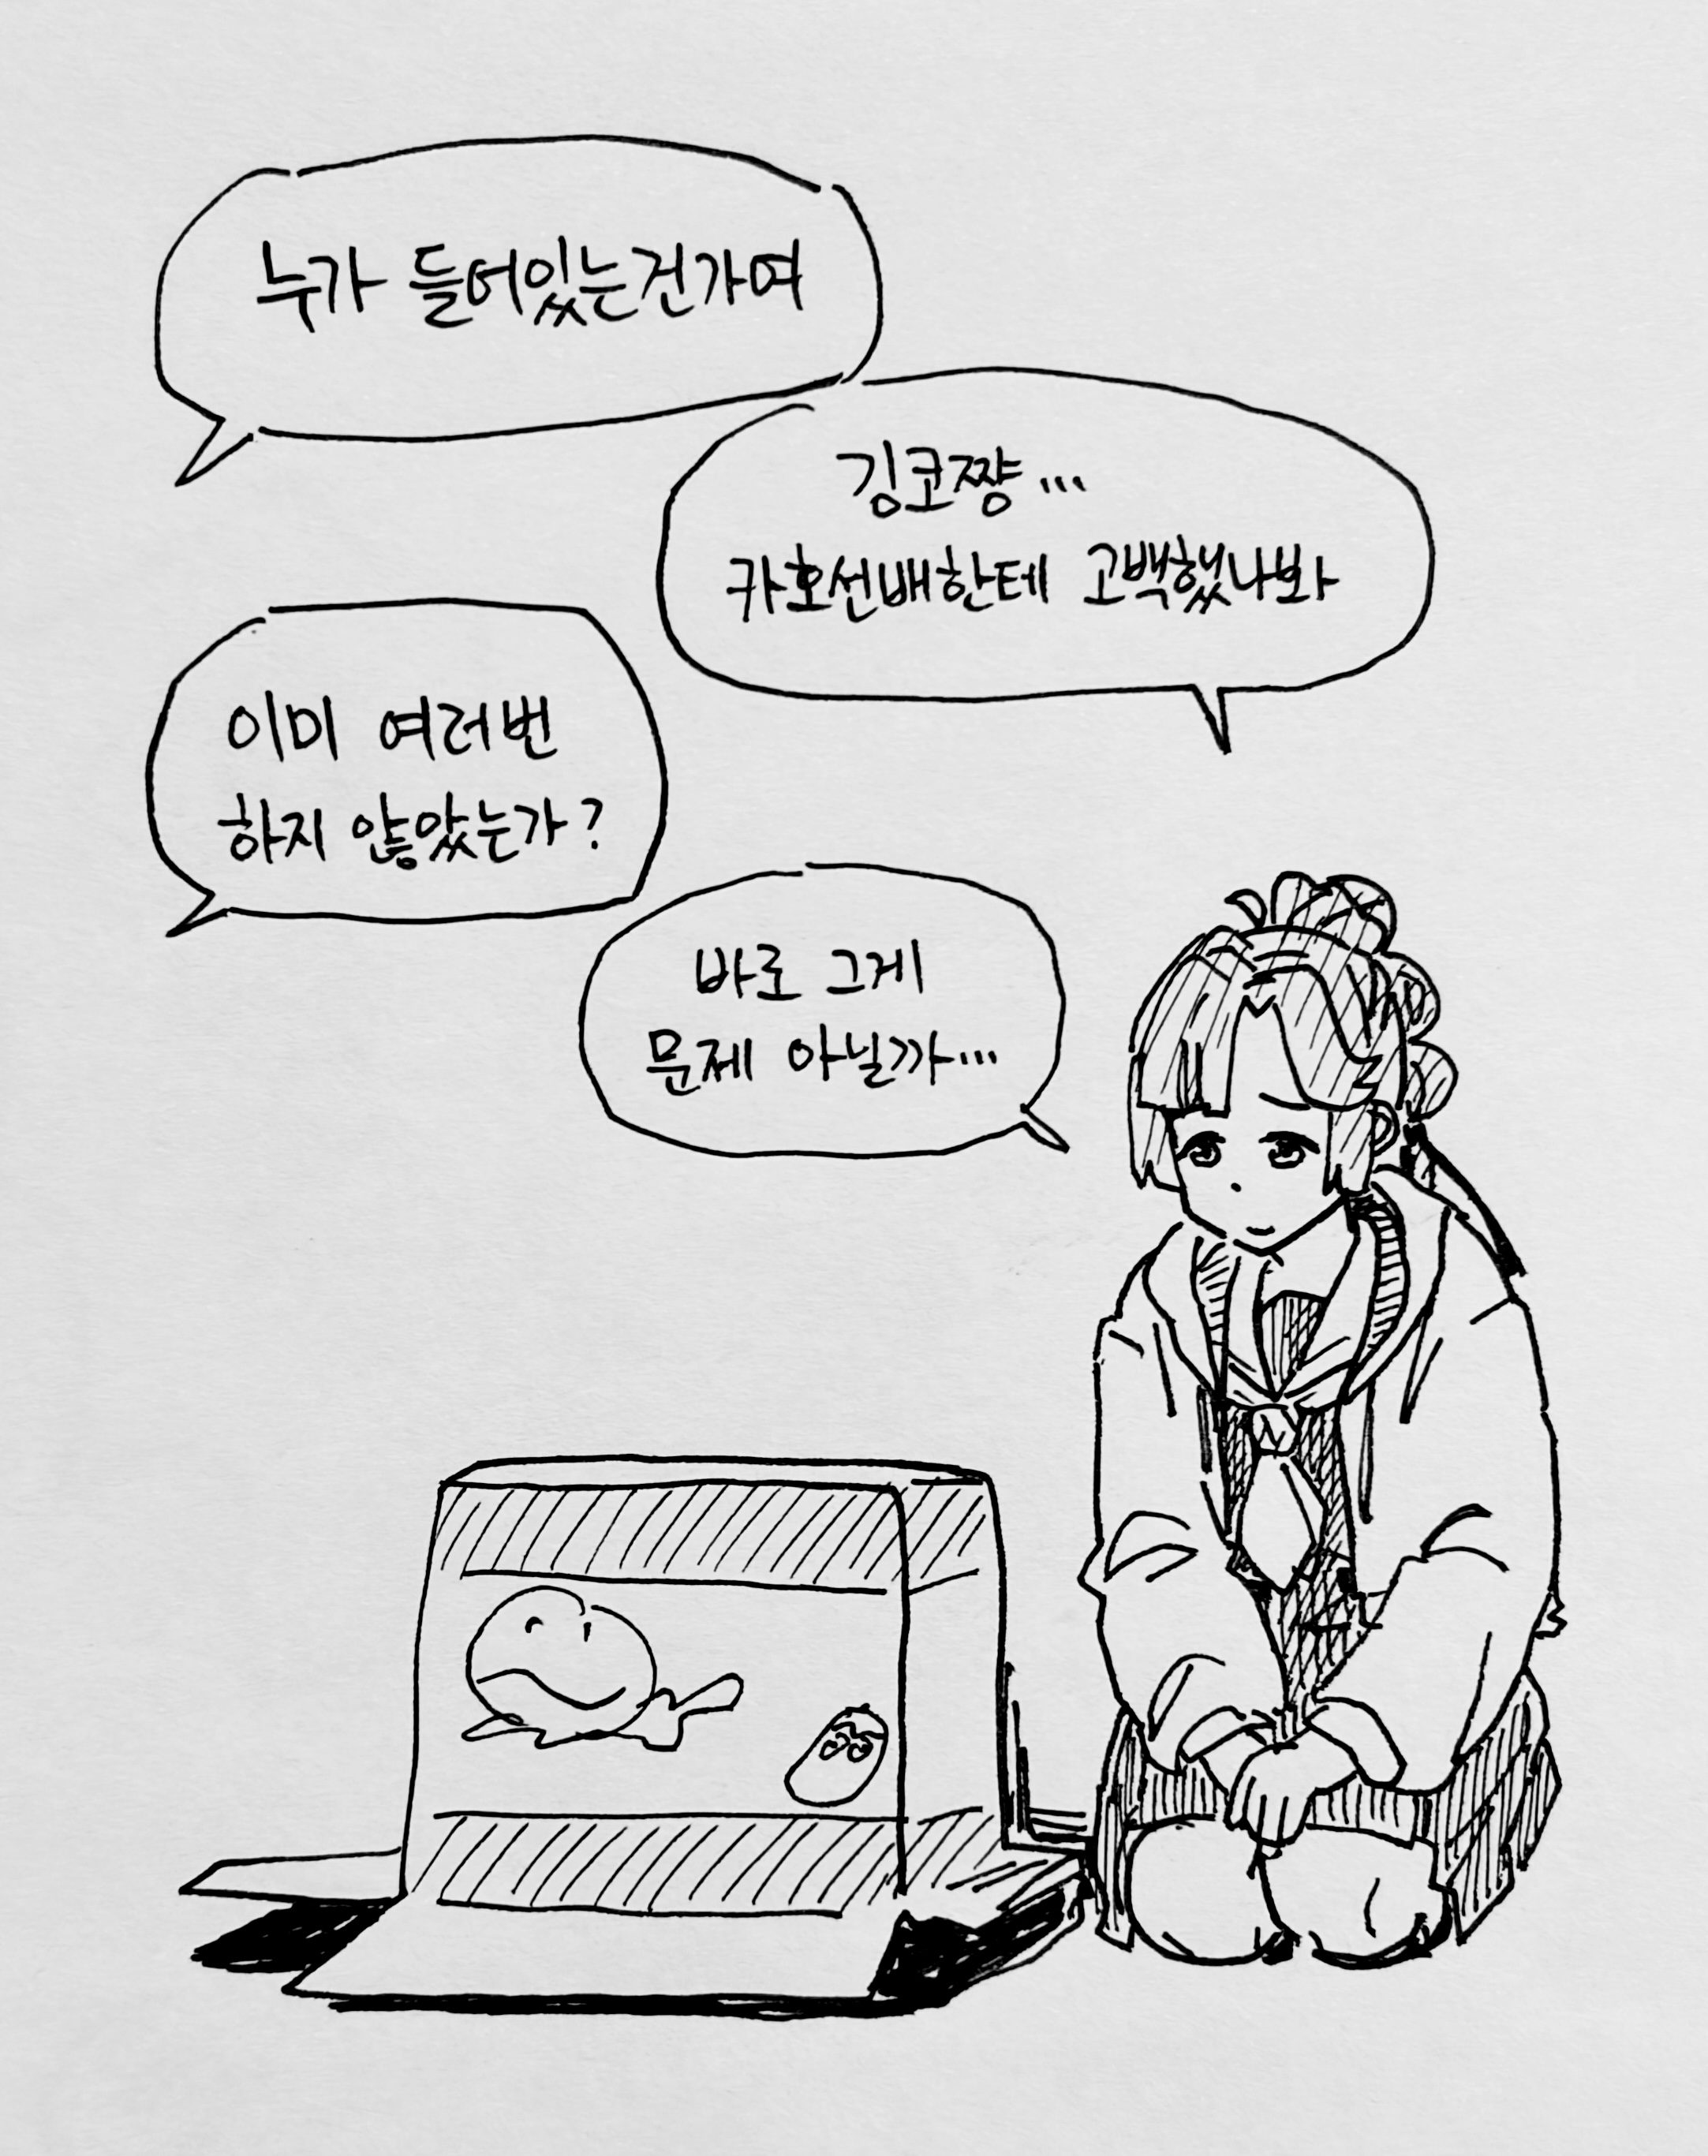 누가 들어있는건가여
깅코쨩...
카호선배한테 고백했나봐
이미 여러번
하지 않았는가?
바로 그게
문제 아닐까...